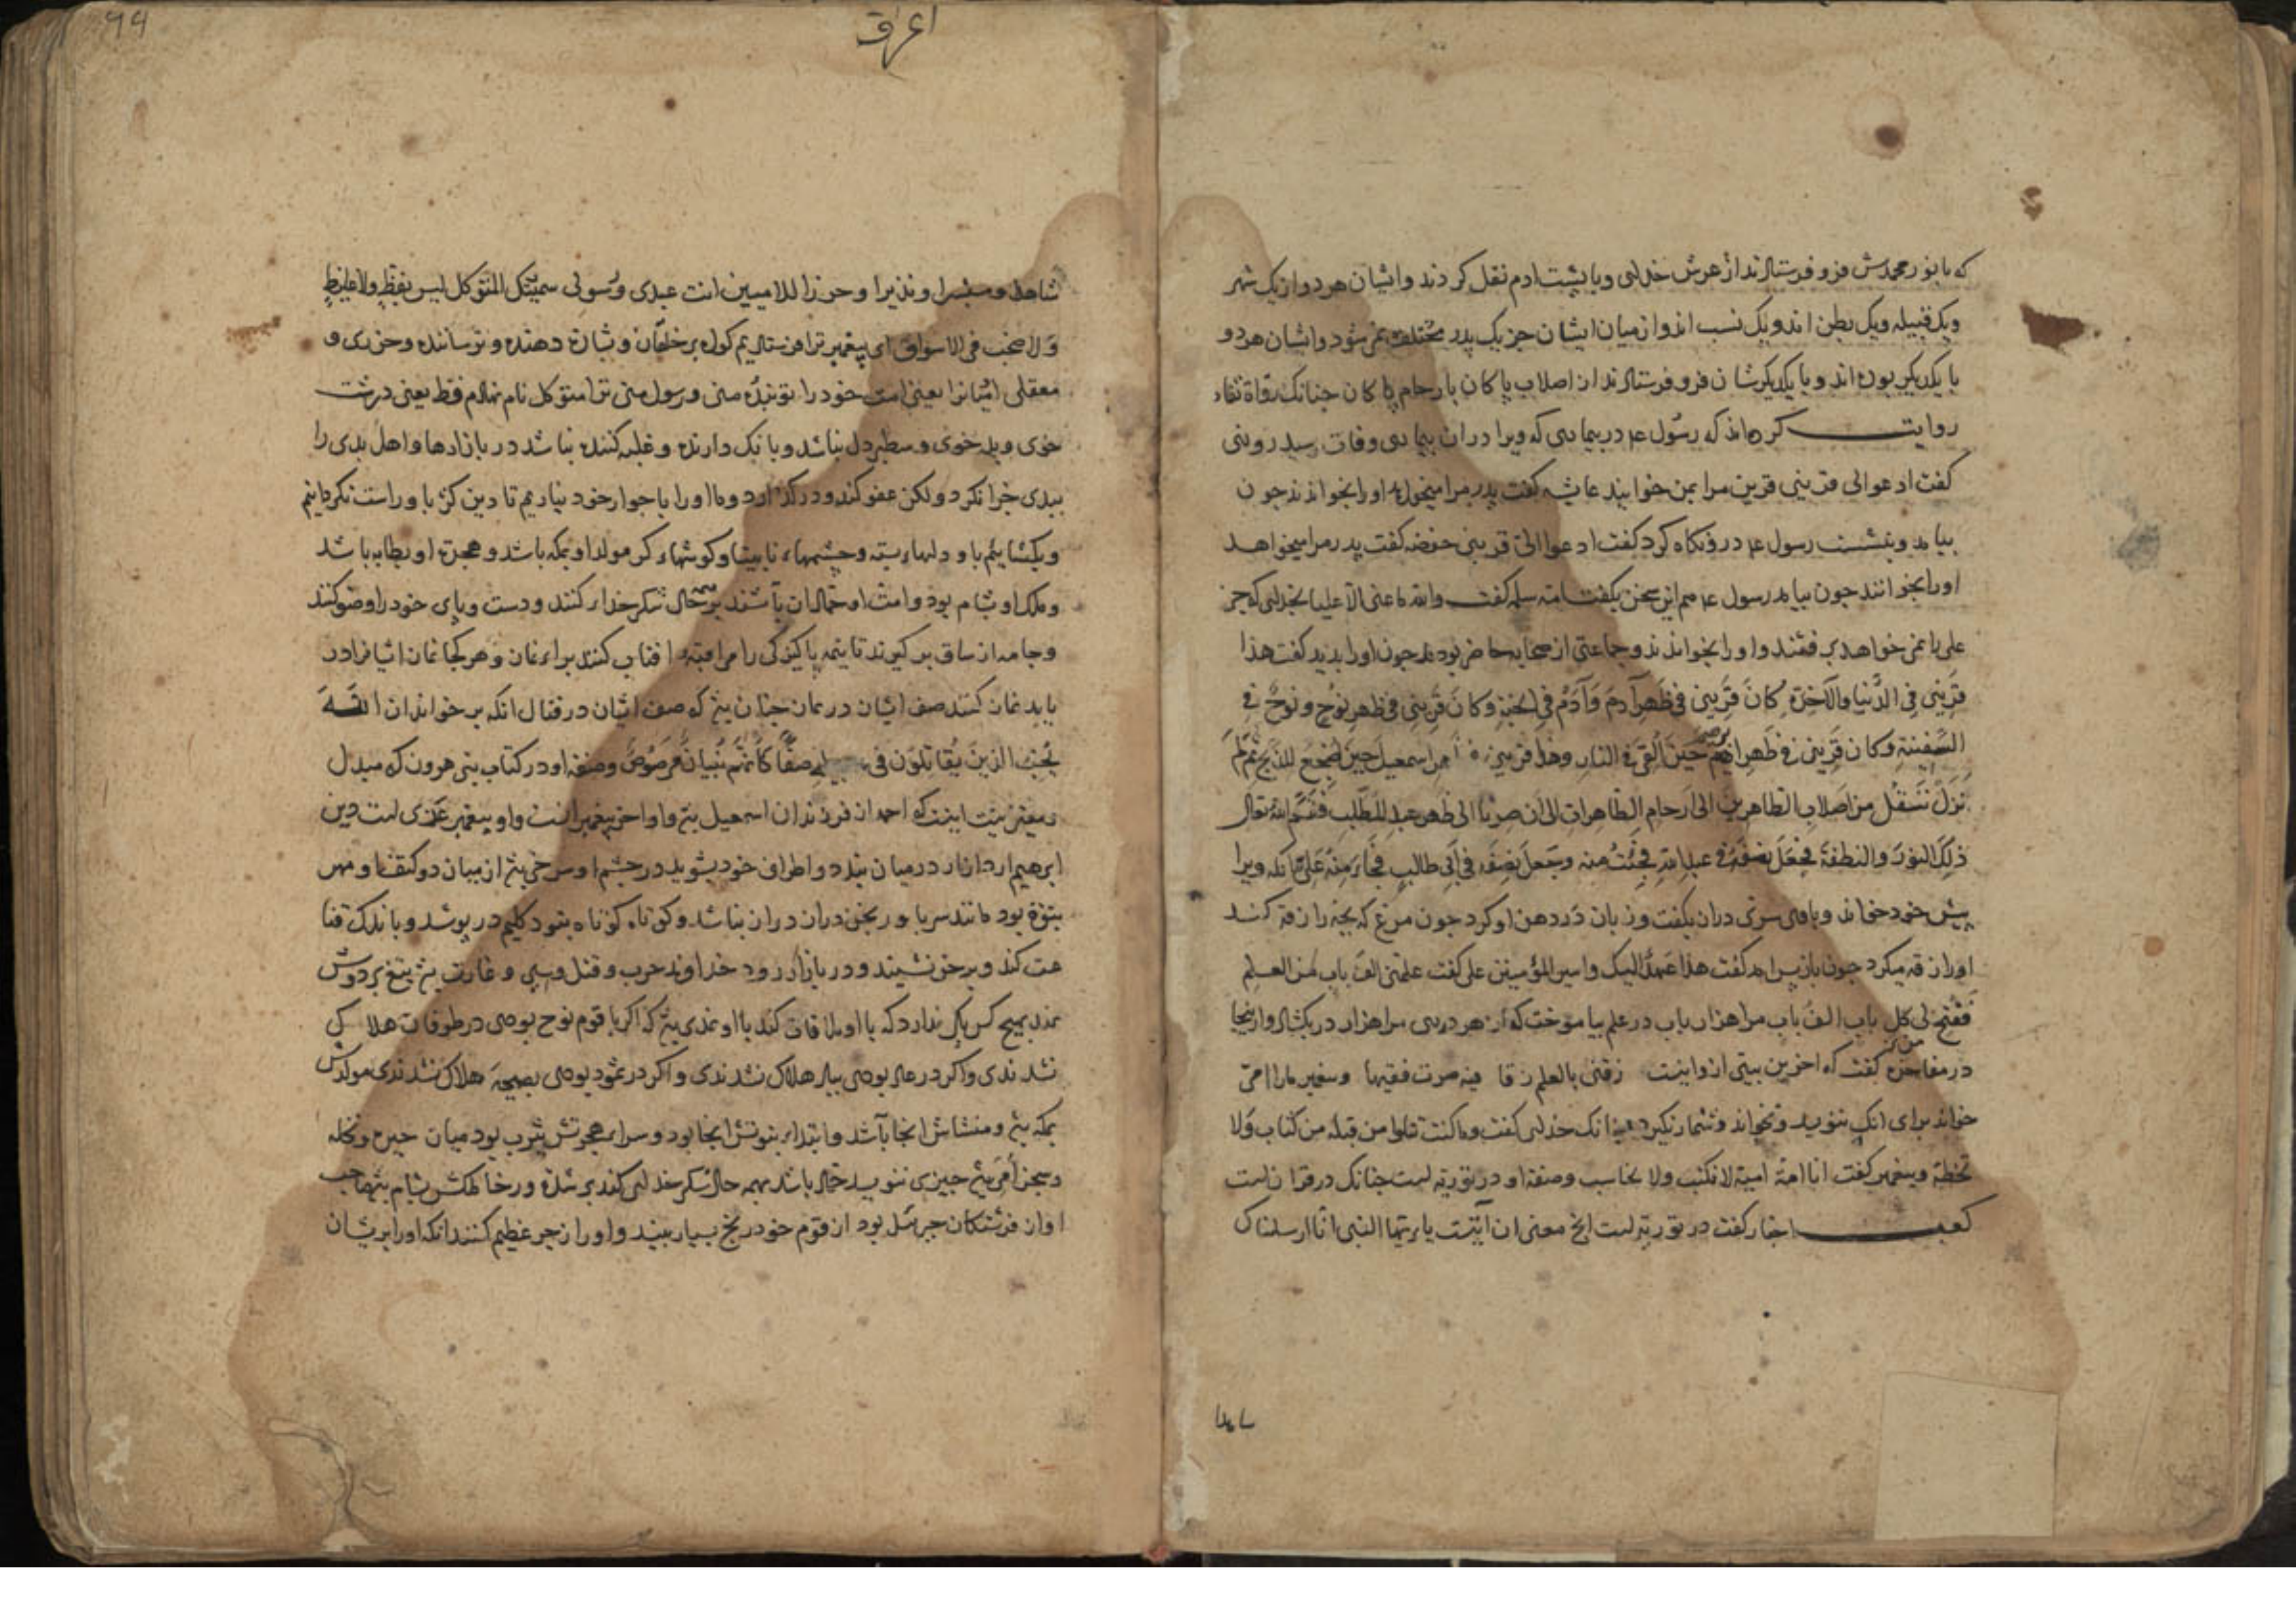 که با نور محمدش فرو فرستادند از عرش خدای و با پشت ادم نقل کردند و ایشان هر دو از یک شهر
و یک قبیله و یک بطن اند و یک نسب اند و از میان ایشان جز یک پدر مختلف نمی شود و ایشان هر دو
با یکدیگر بوده اند و با یکدیگرشان فرو فرستادند از اصلاب پاکان بارحام پاکان جنانک رواة ثقاه
روایت کرده اند که رسول ع در بیماریی که ویرا در ان بیماریی وفات رسید روزی
کفت ادعوا لی قرینی قرین مرا بمن خوانید عایشه کفت پدر مرا میخواهد او را بخواندند جون
بیامد و بنشست رسول ع در و نکاه کرد کفت ادعوا الی قرینی حفصه کفت پدر مرا میخواهد
او را بخوانند جون بیامد رسول ع هم این سخن بکفت ام سلمه کفت والله ما عنی الا علیا بخدای که جز
علی را نمی خواهد برفتند و او را بخواندند و جماعتی از صحابه حاضر بودند جون او را بدید کفت هذا
قَرینی فِی الدُّنیا والآخِرَة کانَ قَرینی فی ظَهرِ آدمَ وَ آدَمُ فی الجنةِ و کانَ قَرینی فی ظهرِ نوُحٍ و نوُحٌ فی
السَّفینَةِ و کان قَرینی فی ظَهرِ ابرهیم حینَ اُلقیَ فی النارِ و هذا قرینی فی اسمعیل حینَ اُضجِعَ للذَّبحِ ثُمَّ لَم
نَزَل نَنتَقلُ من اَصلابِ الطاهرینَ الی اَرحامِ الطّاهِراتِ الی اَن صِرنا الی ظهرِ عبدِ المُطّلبِ فَقَسَّمَ الله تعالی
ذلِکَ النورَ والنطفةَ فَجَعَلَ نِصفَهُ فی عبدِ اللهِ فَجِئتُ منه و جَعلَ نِصفَه فی اَبی طالبٍ فَجاءَ مِنهُ علیّ انکه ویرا
پیش خود خواند و با وی سرّی دران بکفت و زبان در دهن او کرد جون مرغ که بجه را زقه کند
او را زقه میکرد جون باز پس امد کفت هذا عَهدٌ الیک و امیر المؤمنین علی کفت علمنی الف باب من العلم
فَفُتِحَ لی کل باب الف باب مرا هزار باب در علم بیاموخت که از هر دری مرا هزار در بکشاد و از اینجا
در مفاخره کفت که اخرین بیتی از و اینست زقنی بالعلم زقا فیه صرت فقیها و پیغمبر ما را امی
خواند برای انک ننوید و نخواند و شمار نکیرد جنانک خدای کفت وما کنت تتلوا من قبله من کتاب وَلا
تخطه و پیغمبر کفت انا امة امیة لا نکتب ولا نحاسب و صفة او در توریه است جنانک در قران است
کعب احبار کفت در توریه است انج معنی ان آیتست یا ایها النبی انّا ارسلناک
ساهدا

99
اعراف
شاهدا و مبشرا و نذیرا و حرزا للامیین انت عبدی و رَسولی سمیتک المتوکل لیس بفظٍ ولا غلیظٍ
وَ لا صخب فی الاسواق ای پیغمبر ترا فرستادیم کواه بر خلقان و بشارة دهنده و ترساننده و حرزی و
معقلی امّیانرا یعنی امت خود را تو بندهٔ منی و رسول منی ترا متوکل نام نهادم فظ یعنی درشت
خوی و بد خوی و سطبر دل نباشد و بانک دارنده و غلبه کننده نباشد در بازارها و اهل بدی را
ببدی جزا نکرد و لکن عفو کند و درکذارد و ما او را با جوار خود نیاریم تا دین کژ با و راست نکردانیم
و بکشاییم با و دلهاء بسته و جشمهاء نابینا و کوشهاء کر مولد او بمکه باشد و هجرة او بطابه باشد
و ملک او بشام بود و امت او حمادان باشند بر همه حال شکر خدای کنند و دست و پای خود را وضو کنند
و جامه از ساق بر کیرند تا نیمه پاکیزکی را مراقبه افتاب کنند براء نماز و هر کجا نماز ایشانرا در
یابد نماز کنند صف ایشان در نماز جنان بیّ که صف ایشان در قتال انکه بر خواند ان اللّه
یُحِبُّ الذینَ یُقاتِلوُنَ فی سبیلِه صَفًّا کَاَنَّهُم بُنیانٌ مَرصُوصٌ و صفة او در کتاب بنی هرون که مبدل
و مغیر نیست اینست که احمد از فرزندان اسمعیل بیّ و او اخر پیغمبرانست و او پیغمبر عربی است دین
ابرهیم دارد ازار در میان بندد و اطراف خود بشوید در جشم او سرخی بیّ از میان دو کتف او مهر
نبوّة بود مانند سر با و ریختن دران دراز نباشد و کوتاه کوتاه نبود کلیم در پوشد و باندک قنا
عت کند و بر خر نشیند و در بازار رود خداوند حرب و قتل و سبی و غارت بیّ تیغ بر دوش
نهد بهیچ کس باک ندارد که با او ملاقات کند با او نمدی بیّ که اکر با قوم نوح بودی در طوفان هلاک
نشدندی و اکر در عاد بودی بباد هلاک نشدندی و اکر در ثمود بودی بصیحه هلاک نشدندی مولدش
بمکه بیّ و منشاش انجا باشد و ابتداء نبوتش انجا بود و سراء هجرتش یثرب بود میان حره و نخله
و سجن اُمّی بیّ جیزی ننویسد حماد باشد بهمه حال شکر خدای کند بر شده و رخا ملکش بشام بیّ صاحب
او از فرشتکان جبرئیل بود از قوم خود رنج بسیار بیند و او را زجر عظیم کنند انکه او را بریشان